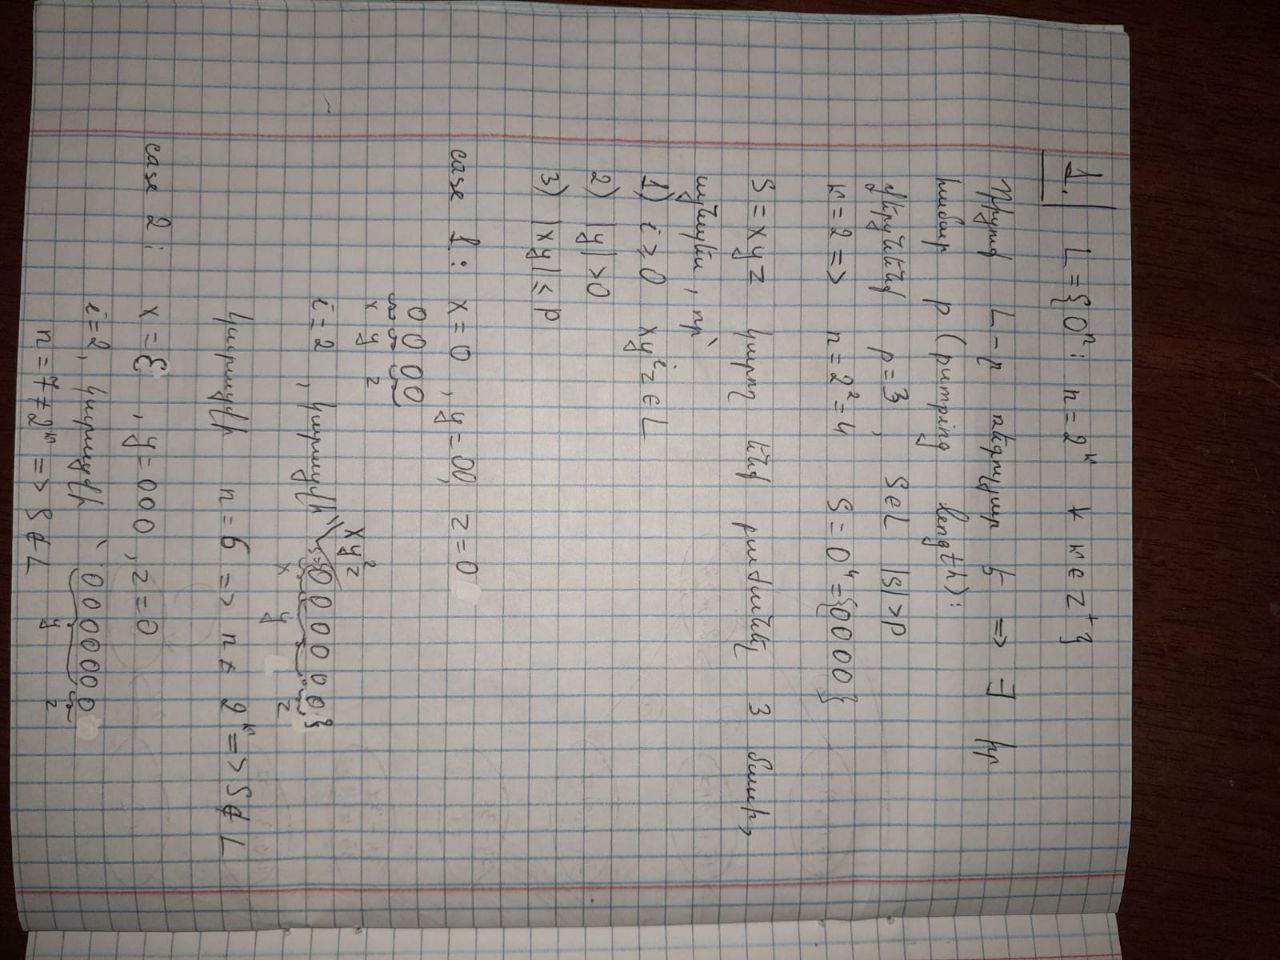 1. L = {0ⁿ: n = 2ᵏ ∀ k ∈ Z⁺}
Դիցուք L-ը ռեգուլյար է => ∃ իր
համար p (pumping length):
Վերցնենք p = 3, S∈L |S| > P
k = 2 => n = 2² = 4 S = 0⁴ = {0000}
S = xyz կարող ենք բաժանել 3 մասի,
այնպես, որ՝
1) i ≥ 0 xyⁱz ∈ L
2) |y| > 0
3) |xy| ≤ P
case 1: x = 0, y = 00, z = 0
0 0 00
x y z
xy²z
i = 2, կստացվի՝ S={0 0 0 0 0 0}
x y z
կստացվի n = 6 => n ≠ 2ᵏ => S ∉ L
case 2: x = Ɛ, y = 000, z = 0
i = 2, կստացվի ՝ 0000000
y z
n = 7 ≠ 2ᵏ => S ∉ L